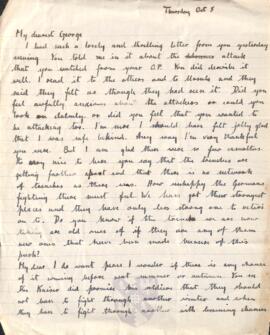 Thursday Oct 5
My dearest George
I had such a lovely and thrilling letter from you yesterday
evening. You told me in it about the attack
that you watched from your O.P. You did describe it
well. I read it to the others and to and they
said they felt as though they had seen it. Did you
feel awfully anxious about the attackers or could you
look on calmly, or did you feel that you wanted to
be attacking too. I'm sure I should have felt jolly glad
that I was safe behind. Any way I'm very thankful
you were. But I am glad there were so few casualties.
Its very nice to hear you say that the trenches are
getting further apart and that there is no network
of trenches as there was. How unhappy the Germans
fighting there must feel. We have got their strongest
places and they have only less strong ones to retire
on to. Do you know if the ones we are now
taking are old ones or if they are any of them
new ones that have been made because of this
push?
My dear I do want peace. I wonder if there is any chance
of it coming before next summer or autumn. You see
the Kaiser did promise his soldiers that they should
not have to fight through another winter and when
they have to fight through another with lessening chances